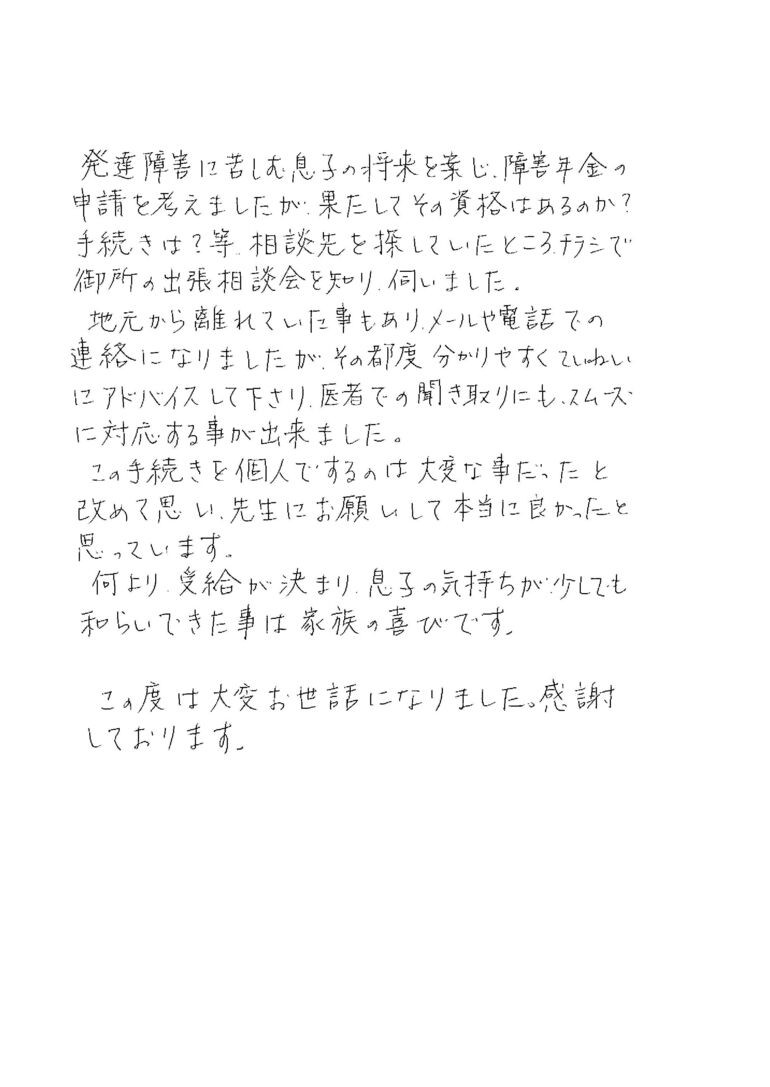 発達障害に苦しむ息子の将来を案じ、障害年金の
申請を考えましたが、果たしてその資格はあるのか?
手続きは?等、相談先を探していたところ、チラシで
御所の出張相談会を知り、伺いました。
地元から離れていた事もあり、メールや電話での
連絡になりましたが、その都度分かりやすくていねい
にアドバイスして下さり、医者での聞き取りにも、スムーズ
に対応する事が出来ました。
この手続きを個人でするのは大変な事だったと
改めて思い、先生にお願いして本当に良かったと
思っています。
何より、受給が決まり、息子の気持ちが、少しでも
和らいできた事は家族の喜びです。
この度は大変お世話になりました。感謝
しております。